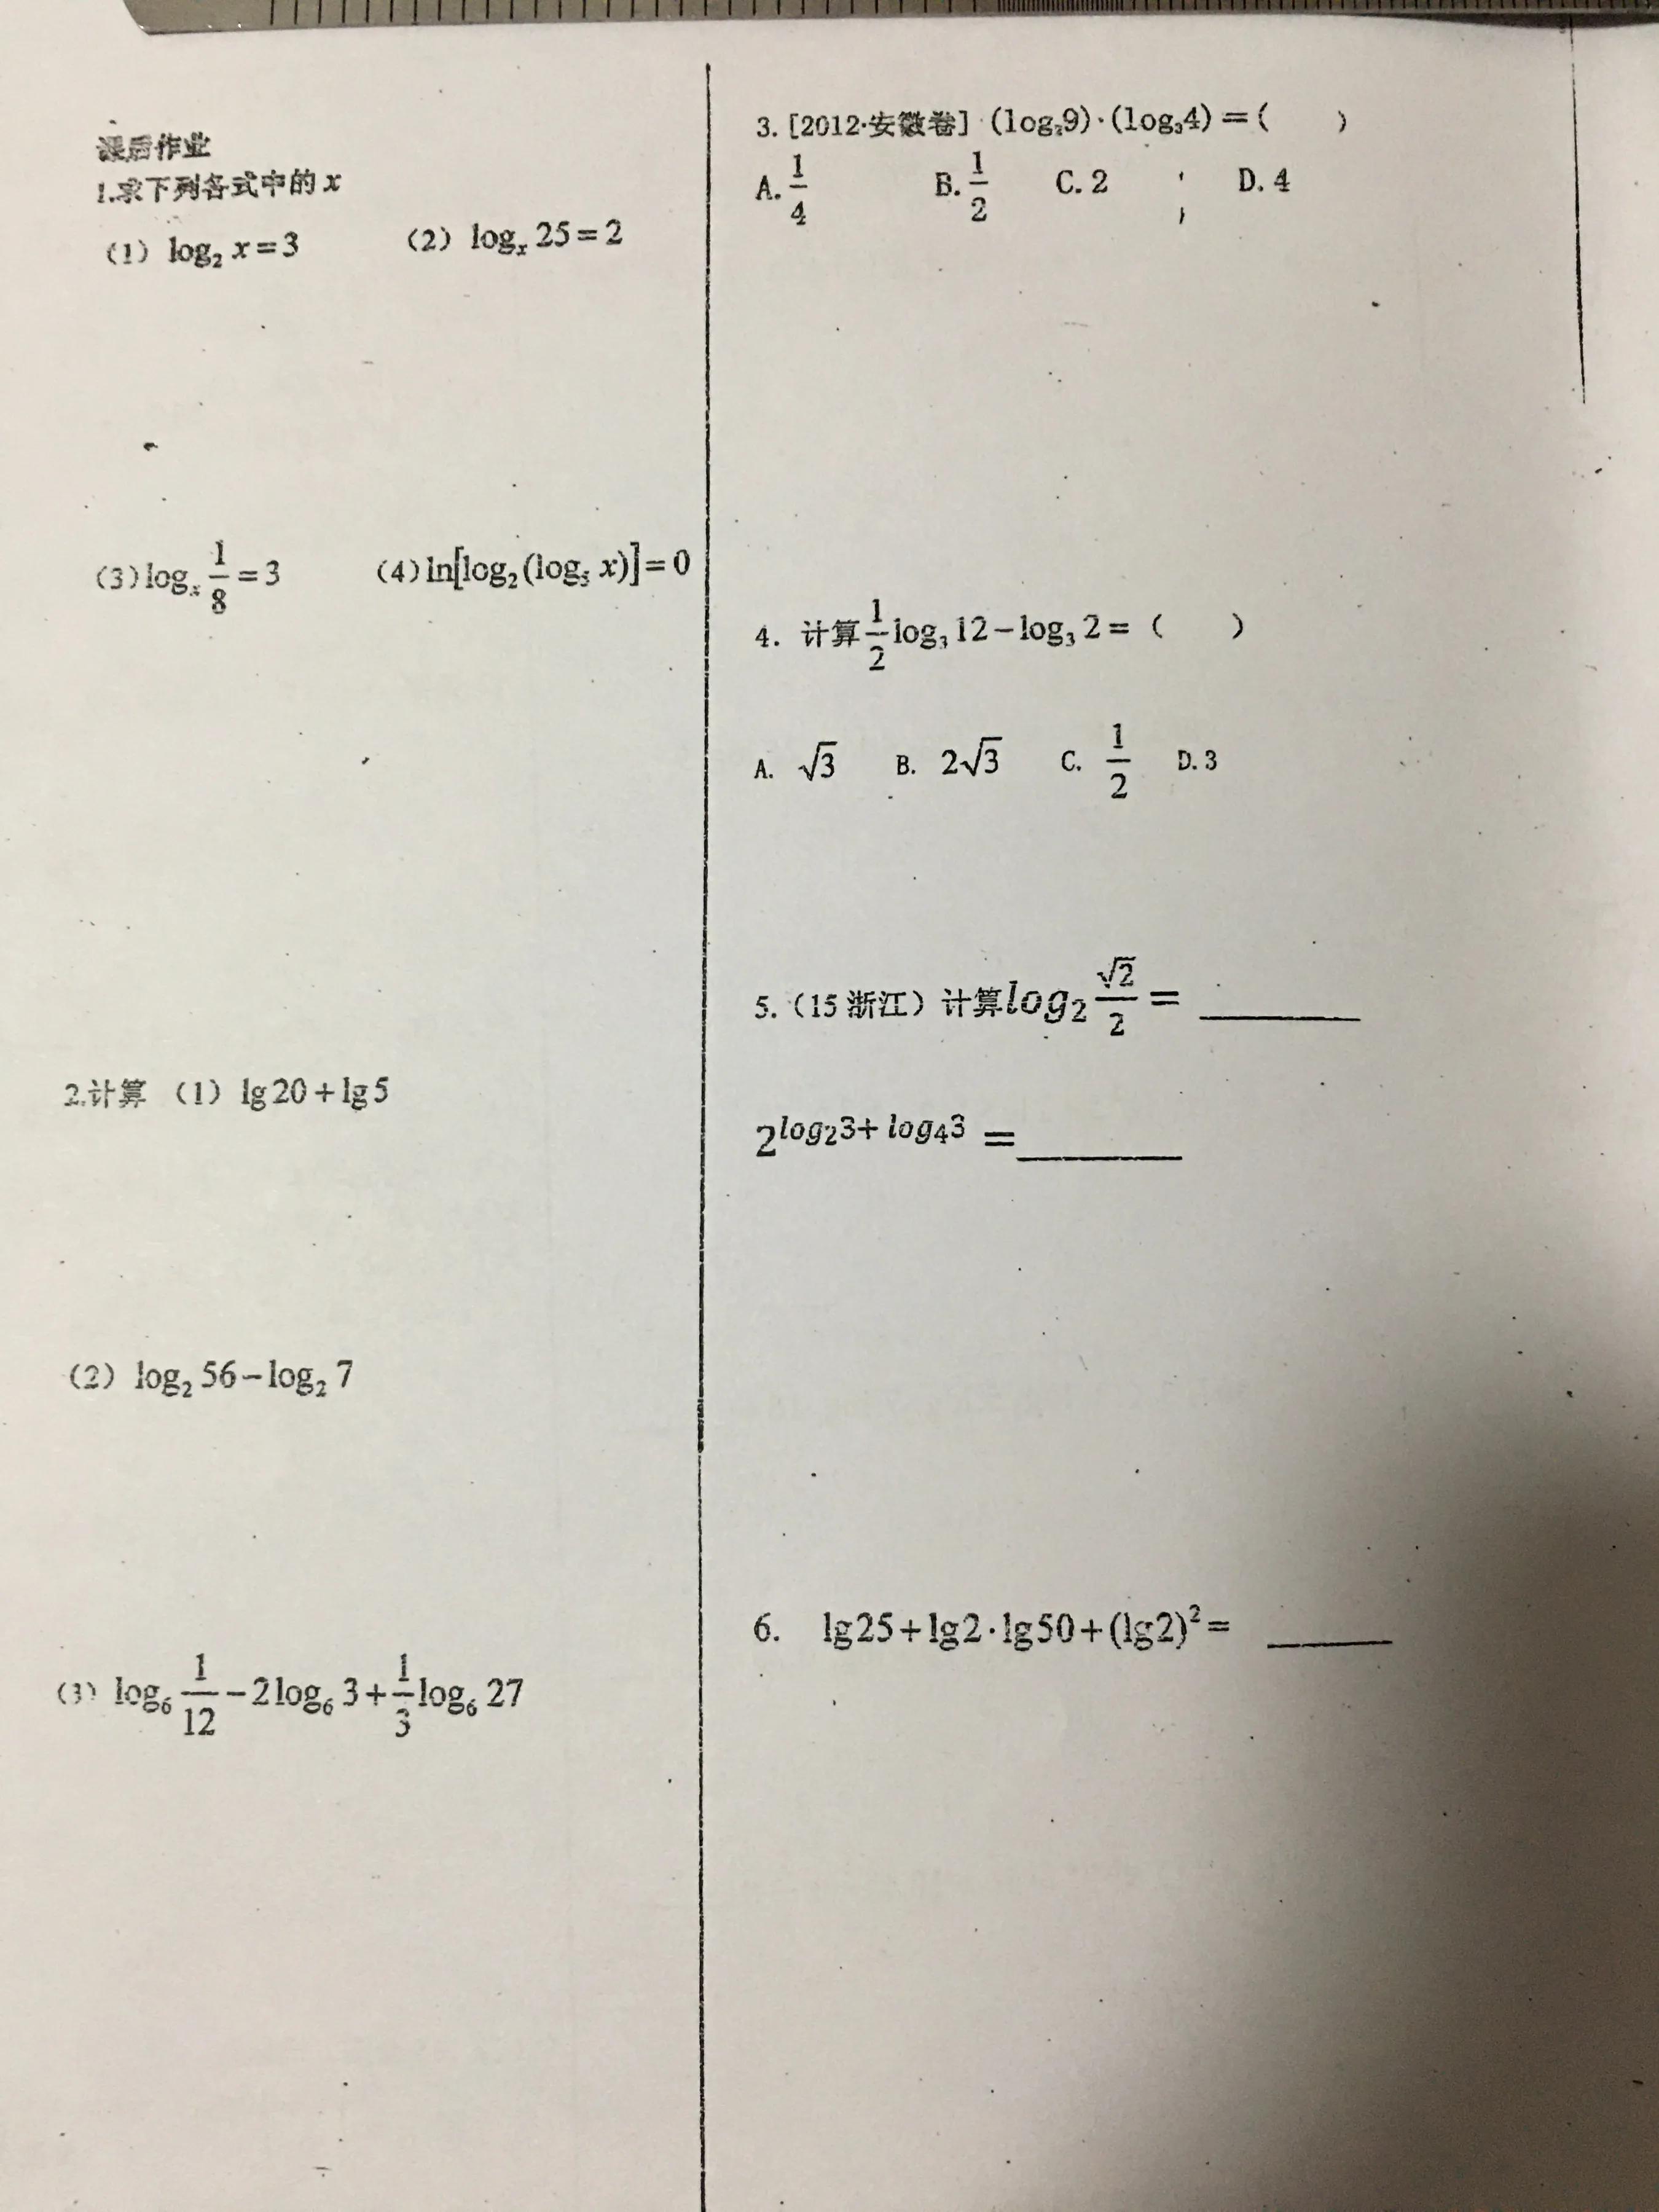 课后作业
1.求下列各式中的 x
（1） log₂ x = 3 （2） logₓ 25 = 2
（3）logₓ 1/8 = 3 （4）ln[log₂(log₅ x)] = 0
2.计算 （1） lg 20 + lg 5
（2） log₂ 56 − log₂ 7
（3） log₆ 1/12 − 2log₆ 3 + 1/3 log₆ 27
3. [2012·安徽卷] (log₂9)·(log₃4) =（ ）
A. 1/4 B. 1/2 C. 2 D. 4
4. 计算 1/2 log₃ 12 − log₃ 2 = （ ）
A. √3 B. 2√3 C. 1/2 D. 3
5.（15 浙江）计算log₂ √2/2 = ______
2^(log₂3+ log₄3) =______
6. lg25 + lg2·lg50 + (lg2)² = ______